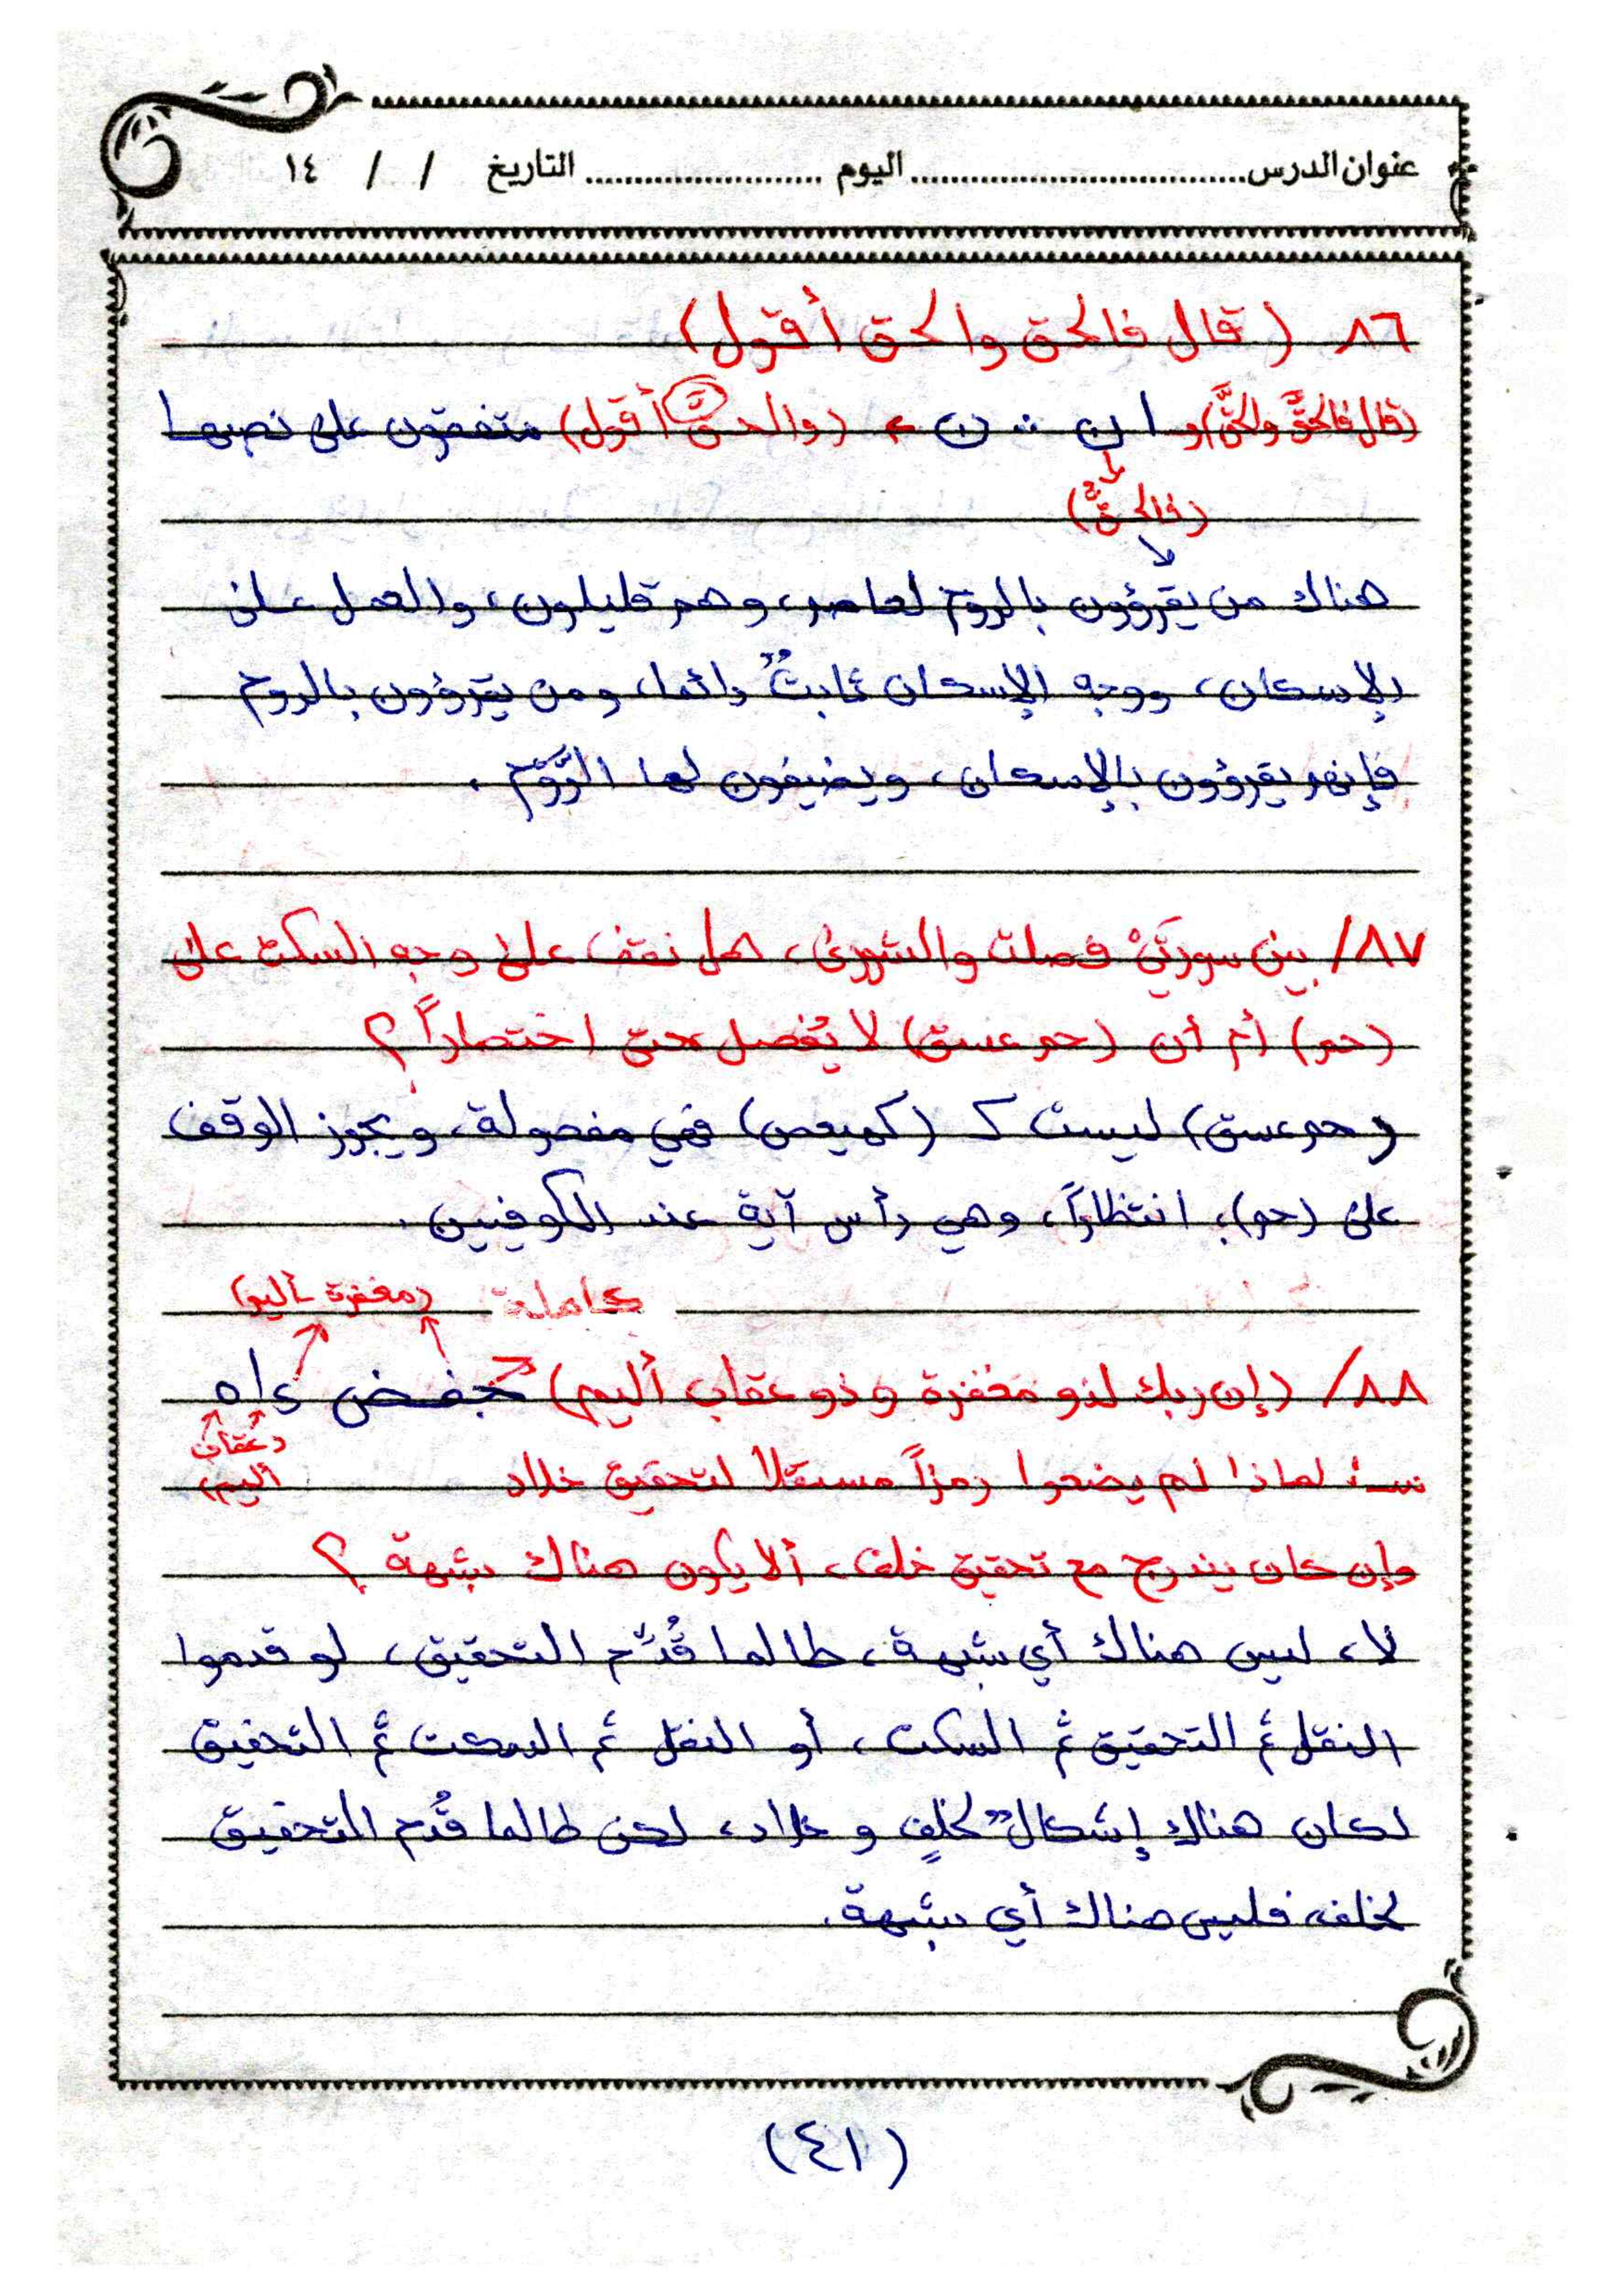 عنوان الدرس.................................. اليوم ........................ التاريخ / / ١٤
٨٦ـ (قال فالحق والحق أقول)
(قال فالحقَّ والحقَّ) و ا ن ∴ ن ء (والحقَّ أقول) متفقون على نصبها
(فالحقُّ)
هناك من يقرؤون بالروم لعاصم، وهم قليلون، والعمل على
الإسكان، ووجه الإسكان ثابتٌ دائما، ومن يقرؤون بالروم
فإنهم يقرؤون بالإسكان، ويضيفون لها الرَّوْم.
٨٧/ بين سورتَيْ فصلت والشورى، هل نقف على وجه السكت على
(حم) أم أن (حم عسق) لا يُفصل حتى اختصاراً؟
(حم عسق) ليست كـ (كهيعص) فهي مفصولة، ويجوز الوقف
على (حم)؛ انتظاراً، وهي رأس آية عند الكوفيين.
كاملة (مغفرة ـ أليم)
٨٨/ (إن ربك لذو مغفرة وذو عقاب أليم)
(عقاب
أليم)
س: لماذا لم يضعوا رمزاً مستقلا لتحقيق خلاد
وإن كان يندرج مع تحقيق خلف، ألا يكون هناك شبهة؟
لا، ليس هناك أي شبهة، طالما قُدِّم التحقيق، لو قدموا
النقل ثم التحقيق ثم السكت، أو النقل ثم السكت ثم التحقيق
لكان هناك إشكالٌ لخلفٍ و خلاد، لكن طالما قُدم التحقيق
لخلف فليس هناك أي شبهة.
(٤١)